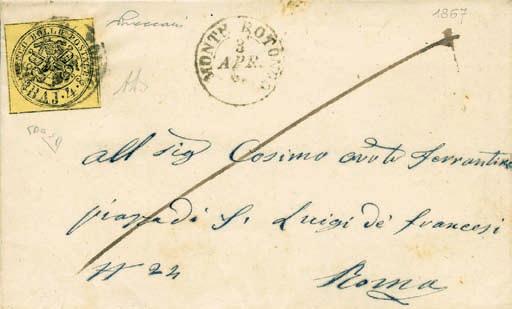 1867
FRANCO BOLLO POSTALE BAJ. 4.
MONTE ROTONDO
3
APR.
all Sig Cosimo avvte Ferrantini
piazza di S. Luigi de' francesi
N 24
Roma